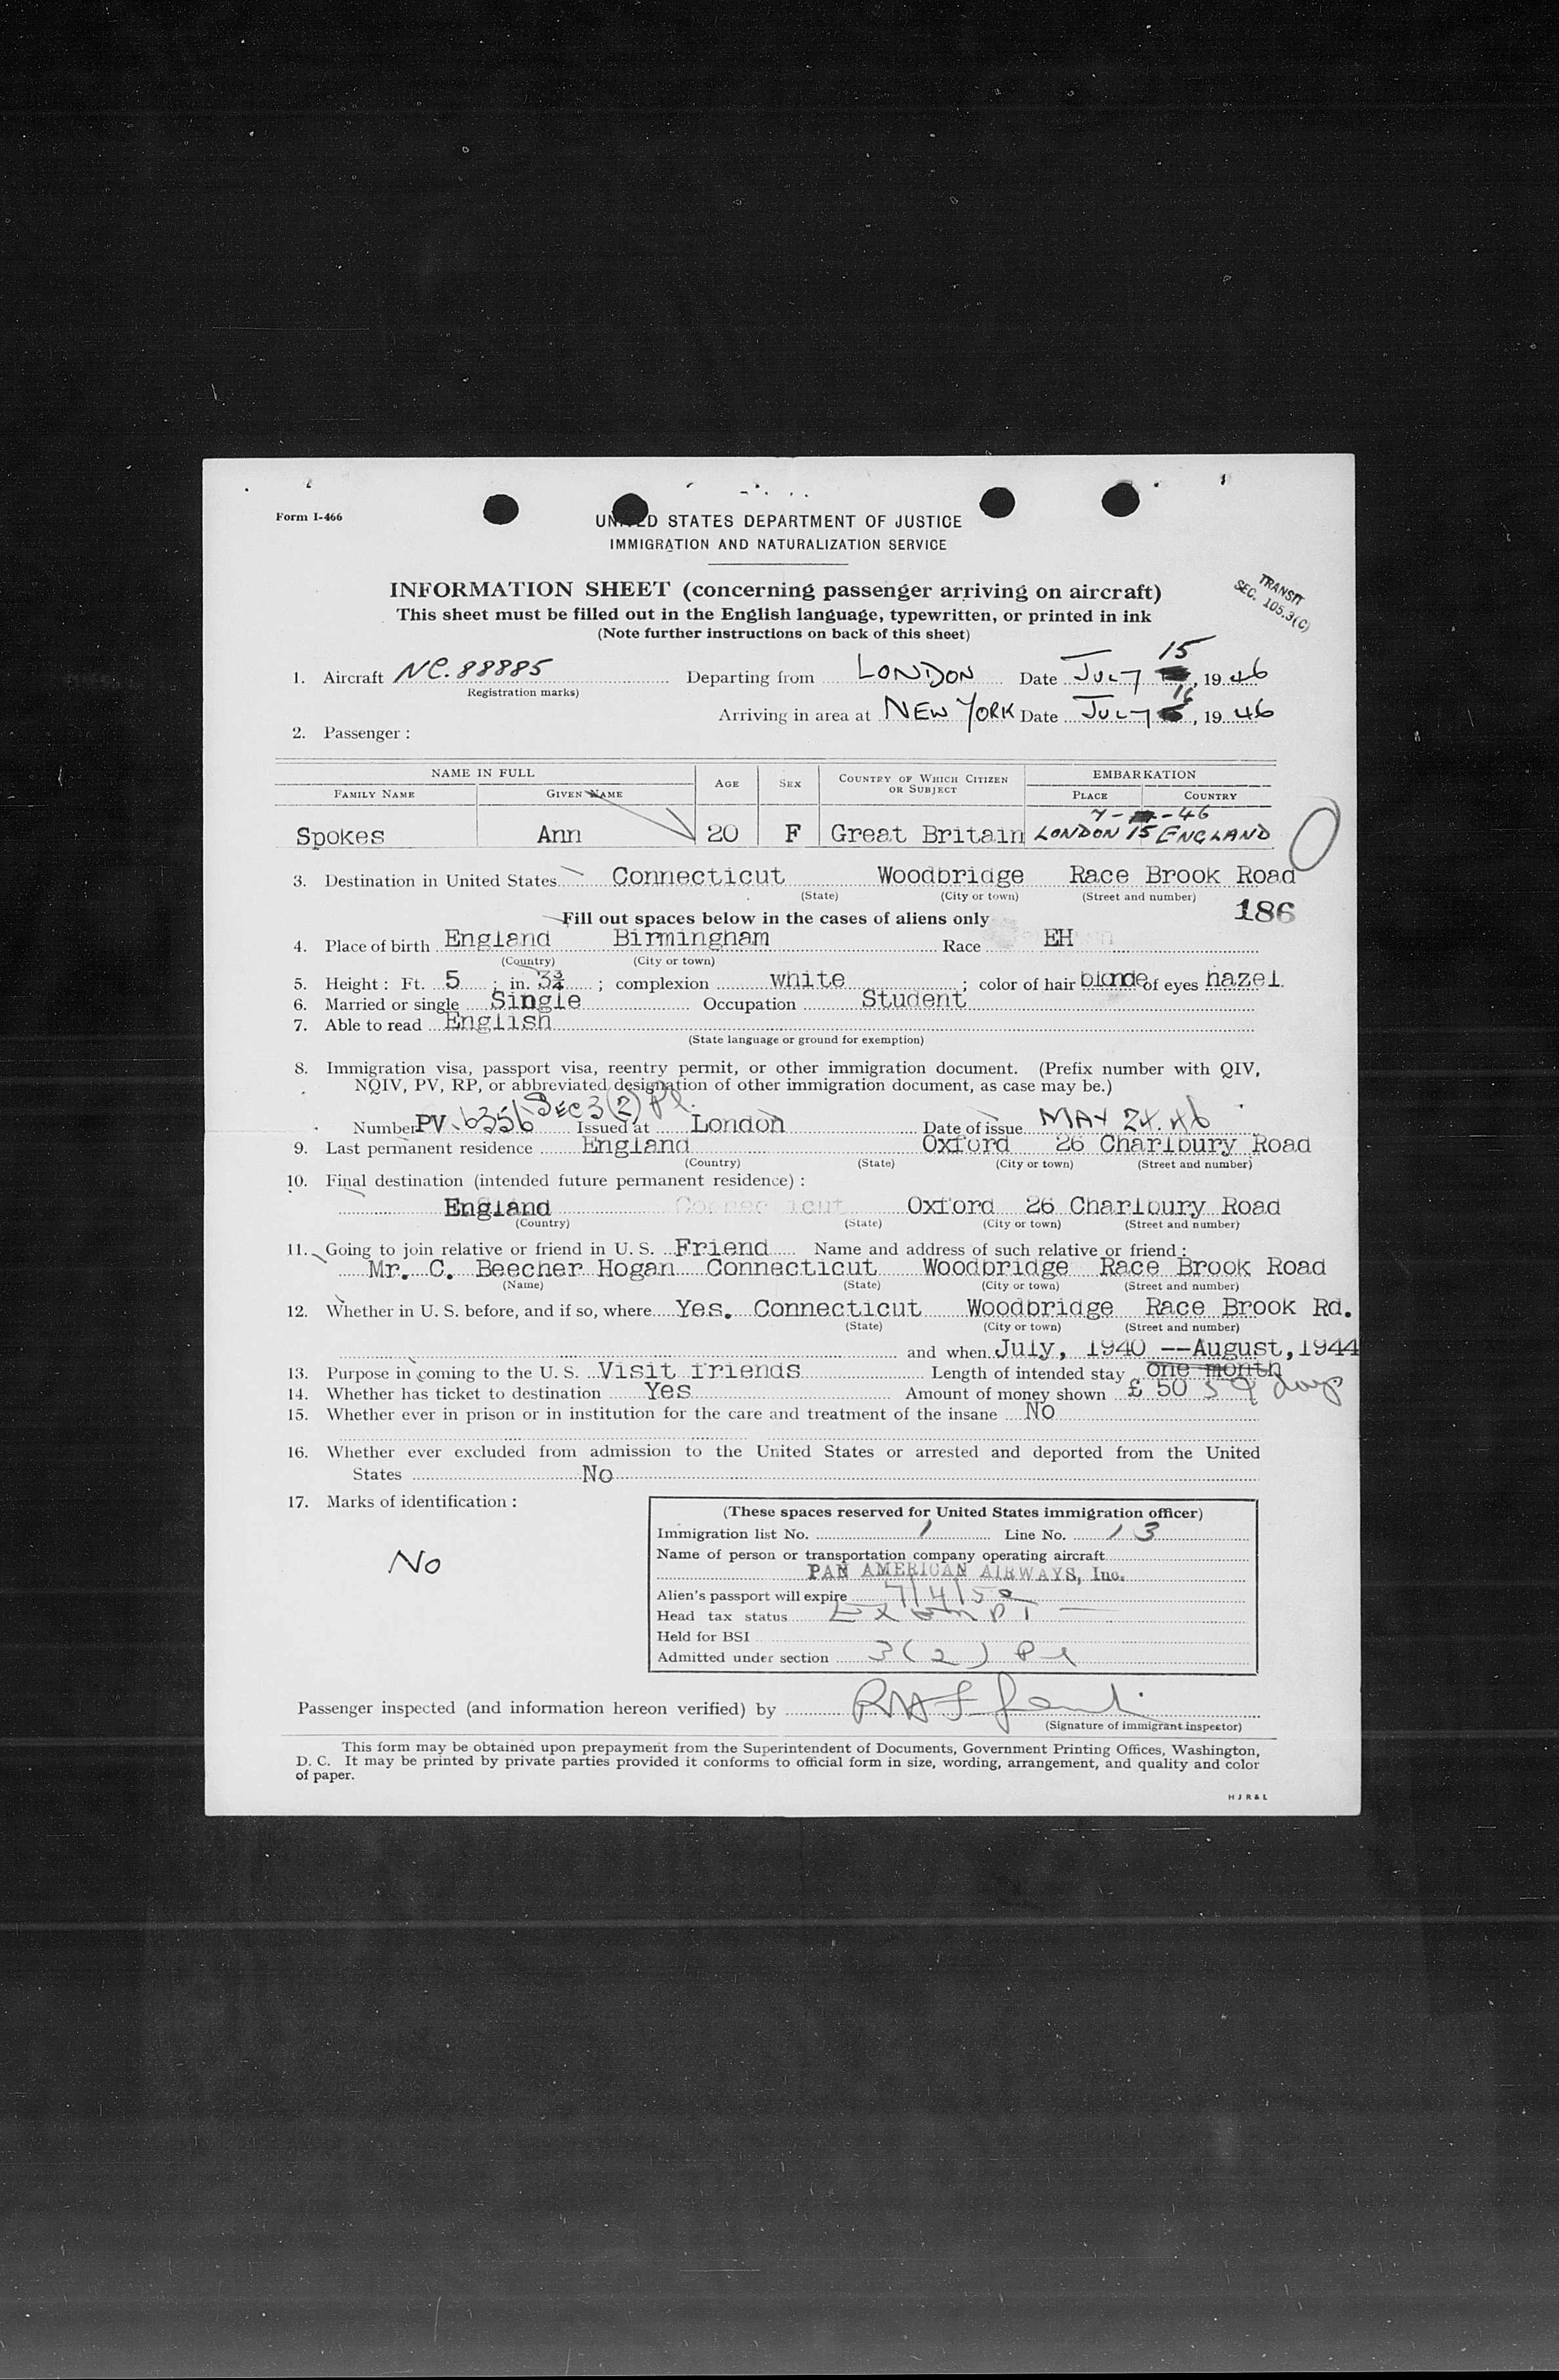 Form I-466
UNITED STATES DEPARTMENT OF JUSTICE
IMMIGRATION AND NATURALIZATION SERVICE
INFORMATION SHEET (concerning passenger arriving on aircraft)
This sheet must be filled out in the English language, typewritten, or printed in ink
(Note further instructions on back of this sheet)
TRANSIT
SEC. 105.3(C)
15
1. Aircraft NC.88885 Departing from LONDON Date JULY , 19 46
(Registration marks)
16
Arriving in area at NEW YORK Date JULY , 19 46
2. Passenger :
NAME IN FULL AGE SEX COUNTRY OF WHICH CITIZEN OR SUBJECT EMBARKATION
FAMILY NAME GIVEN NAME PLACE COUNTRY
7- -46
Spokes Ann 20 F Great Britain LONDON 15 ENGLAND
3. Destination in United States Connecticut Woodbridge Race Brook Road
(State) (City or town) (Street and number)
186
Fill out spaces below in the cases of aliens only
4. Place of birth England Birmingham Race EH
(Country) (City or town)
5. Height : Ft. 5 ; in. 3¾ ; complexion white ; color of hair blonde of eyes hazel
6. Married or single Single Occupation Student
7. Able to read English
(State language or ground for exemption)
8. Immigration visa, passport visa, reentry permit, or other immigration document. (Prefix number with QIV,
NQIV, PV, RP, or abbreviated designation of other immigration document, as case may be.)
SEC 3(2) Pl.
Number PV 6356 Issued at London Date of issue MAY 24.46
9. Last permanent residence England Oxford 26 Charlbury Road
(Country) (State) (City or town) (Street and number)
10. Final destination (intended future permanent residence) :
England Oxford 26 Charlbury Road
(Country) (State) (City or town) (Street and number)
11. Going to join relative or friend in U. S. Friend Name and address of such relative or friend :
Mr. C. Beecher Hogan Connecticut Woodbridge Race Brook Road
(Name) (State) (City or town) (Street and number)
12. Whether in U. S. before, and if so, where Yes. Connecticut Woodbridge Race Brook Rd.
(State) (City or town) (Street and number)
and when July, 1940 --August,1944
13. Purpose in coming to the U. S. Visit friends Length of intended stay one month
14. Whether has ticket to destination Yes Amount of money shown £ 50 59 days
15. Whether ever in prison or in institution for the care and treatment of the insane No
16. Whether ever excluded from admission to the United States or arrested and deported from the United
States No
17. Marks of identification :
No
(These spaces reserved for United States immigration officer)
Immigration list No. 1 Line No. 13
Name of person or transportation company operating aircraft
PAN AMERICAN AIRWAYS, Inc.
Alien's passport will expire 7/4/50
Head tax status Exempt
Held for BSI
Admitted under section 3(2) Pl
Passenger inspected (and information hereon verified) by
(Signature of immigrant inspector)
This form may be obtained upon prepayment from the Superintendent of Documents, Government Printing Offices, Washington,
D. C. It may be printed by private parties provided it conforms to official form in size, wording, arrangement, and quality and color
of paper.
H J R & L